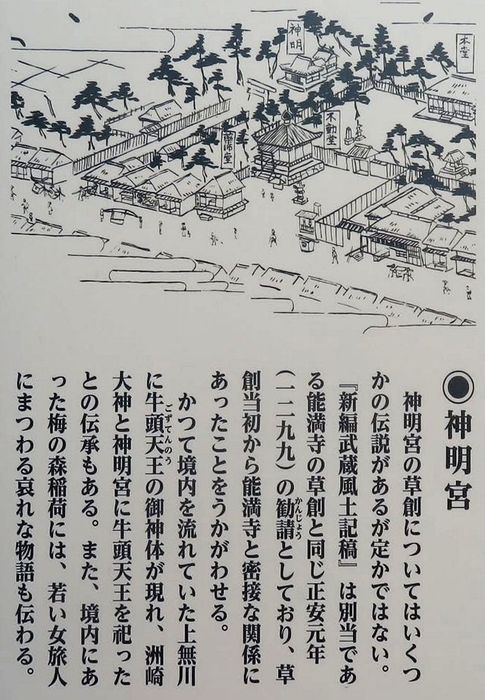 神明
本堂
不動堂
◉神明宮
神明宮の草創についてはいくつ
かの伝説があるが定かではない。
『新編武蔵風土記稿』は別当であ
る能満寺の草創と同じ正安元年
(一二九九)の勧請としており、草
創当初から能満寺と密接な関係に
あったことをうかがわせる。
かつて境内を流れていた上無川
に牛頭天王の御神体が現れ、洲崎
大神と神明宮に牛頭天王を祀った
との伝承もある。また、境内にあ
った梅の森稲荷には、若い女旅人
にまつわる哀れな物語も伝わる。
かんじょう
ごずてんのう